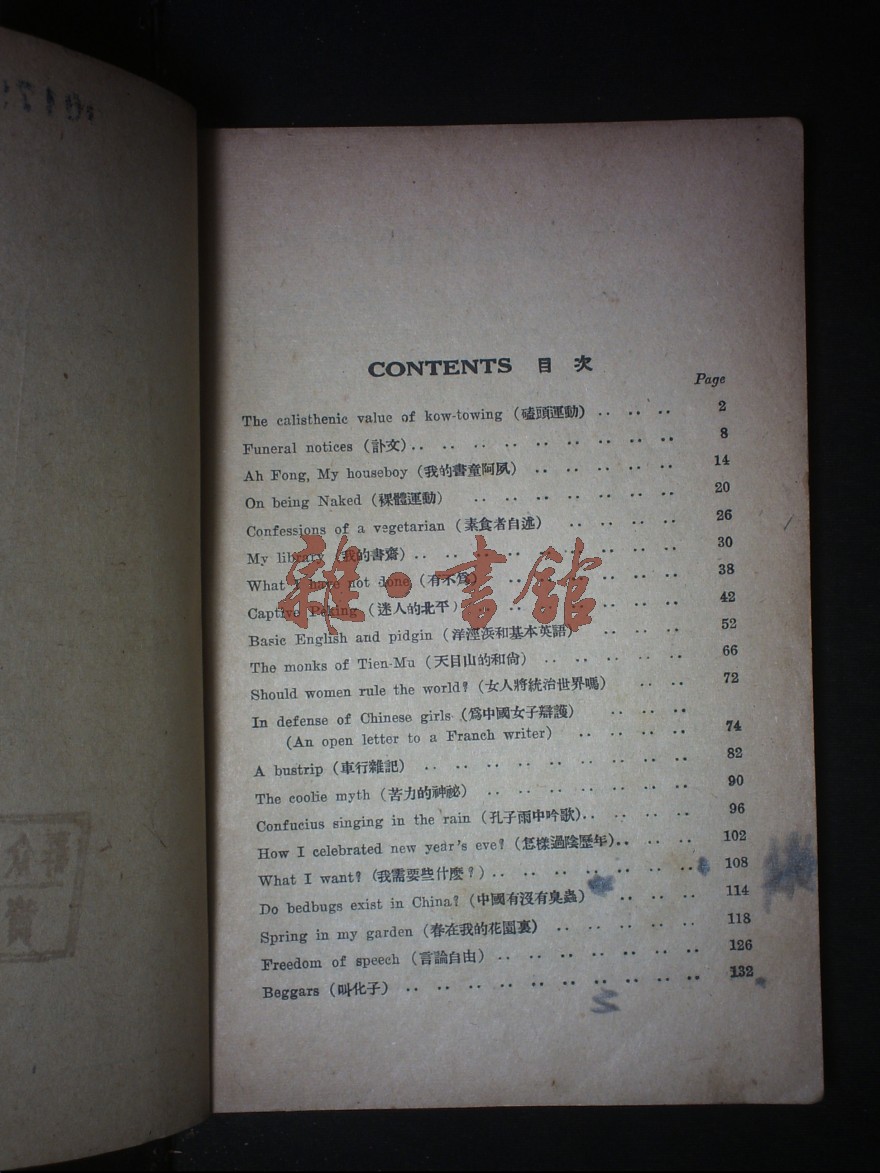 CONTENTS 目次
Page
The calisthenic value of kow-towing (磕頭運動) .. .. .. 2
Funeral notices (訃文).. .. .. .. .. .. .. .. .. 8
Ah Fong, My houseboy (我的書童阿夙) .. .. .. .. .. 14
On being Naked (裸體運動) .. .. .. .. .. .. .. 20
Confessions of a vegetarian (素食者自述) .. .. .. .. 26
My library (我的書齋).. .. .. .. .. .. .. .. .. 30
What I have not done (有不爲) .. .. .. .. .. .. 38
Captive Peking (迷人的北平) .. .. .. .. .. .. .. 42
Basic English and pidgin (洋涇浜和基本英語) .. .. .. 52
The monks of Tien-Mu (天目山的和尙) .. .. .. .. .. 66
Should women rule the world? (女人將統治世界嗎) .. .. 72
In defense of Chinese girls (爲中國女子辯護) .. .. ..
(An open letter to a Franch writer) .. .. .. .. 74
A bustrip (車行雜記) .. .. .. .. .. .. .. .. .. 82
The coolie myth (苦力的神祕) .. .. .. .. .. .. .. 90
Confucius singing in the rain (孔子雨中吟歌).. .. .. .. 96
How I celebrated new year's eve? (怎樣過陰歷年).. .. .. 102
What I want? (我需要些什麼?).. .. .. .. .. .. .. 108
Do bedbugs exist in China? (中國有沒有臭蟲) .. .. .. 114
Spring in my garden (春在我的花園裏) .. .. .. .. .. 118
Freedom of speech (言論自由).. .. .. .. .. .. .. 126
Beggars (叫化子) .. .. .. .. .. .. .. .. .. .. 132
雜·書館